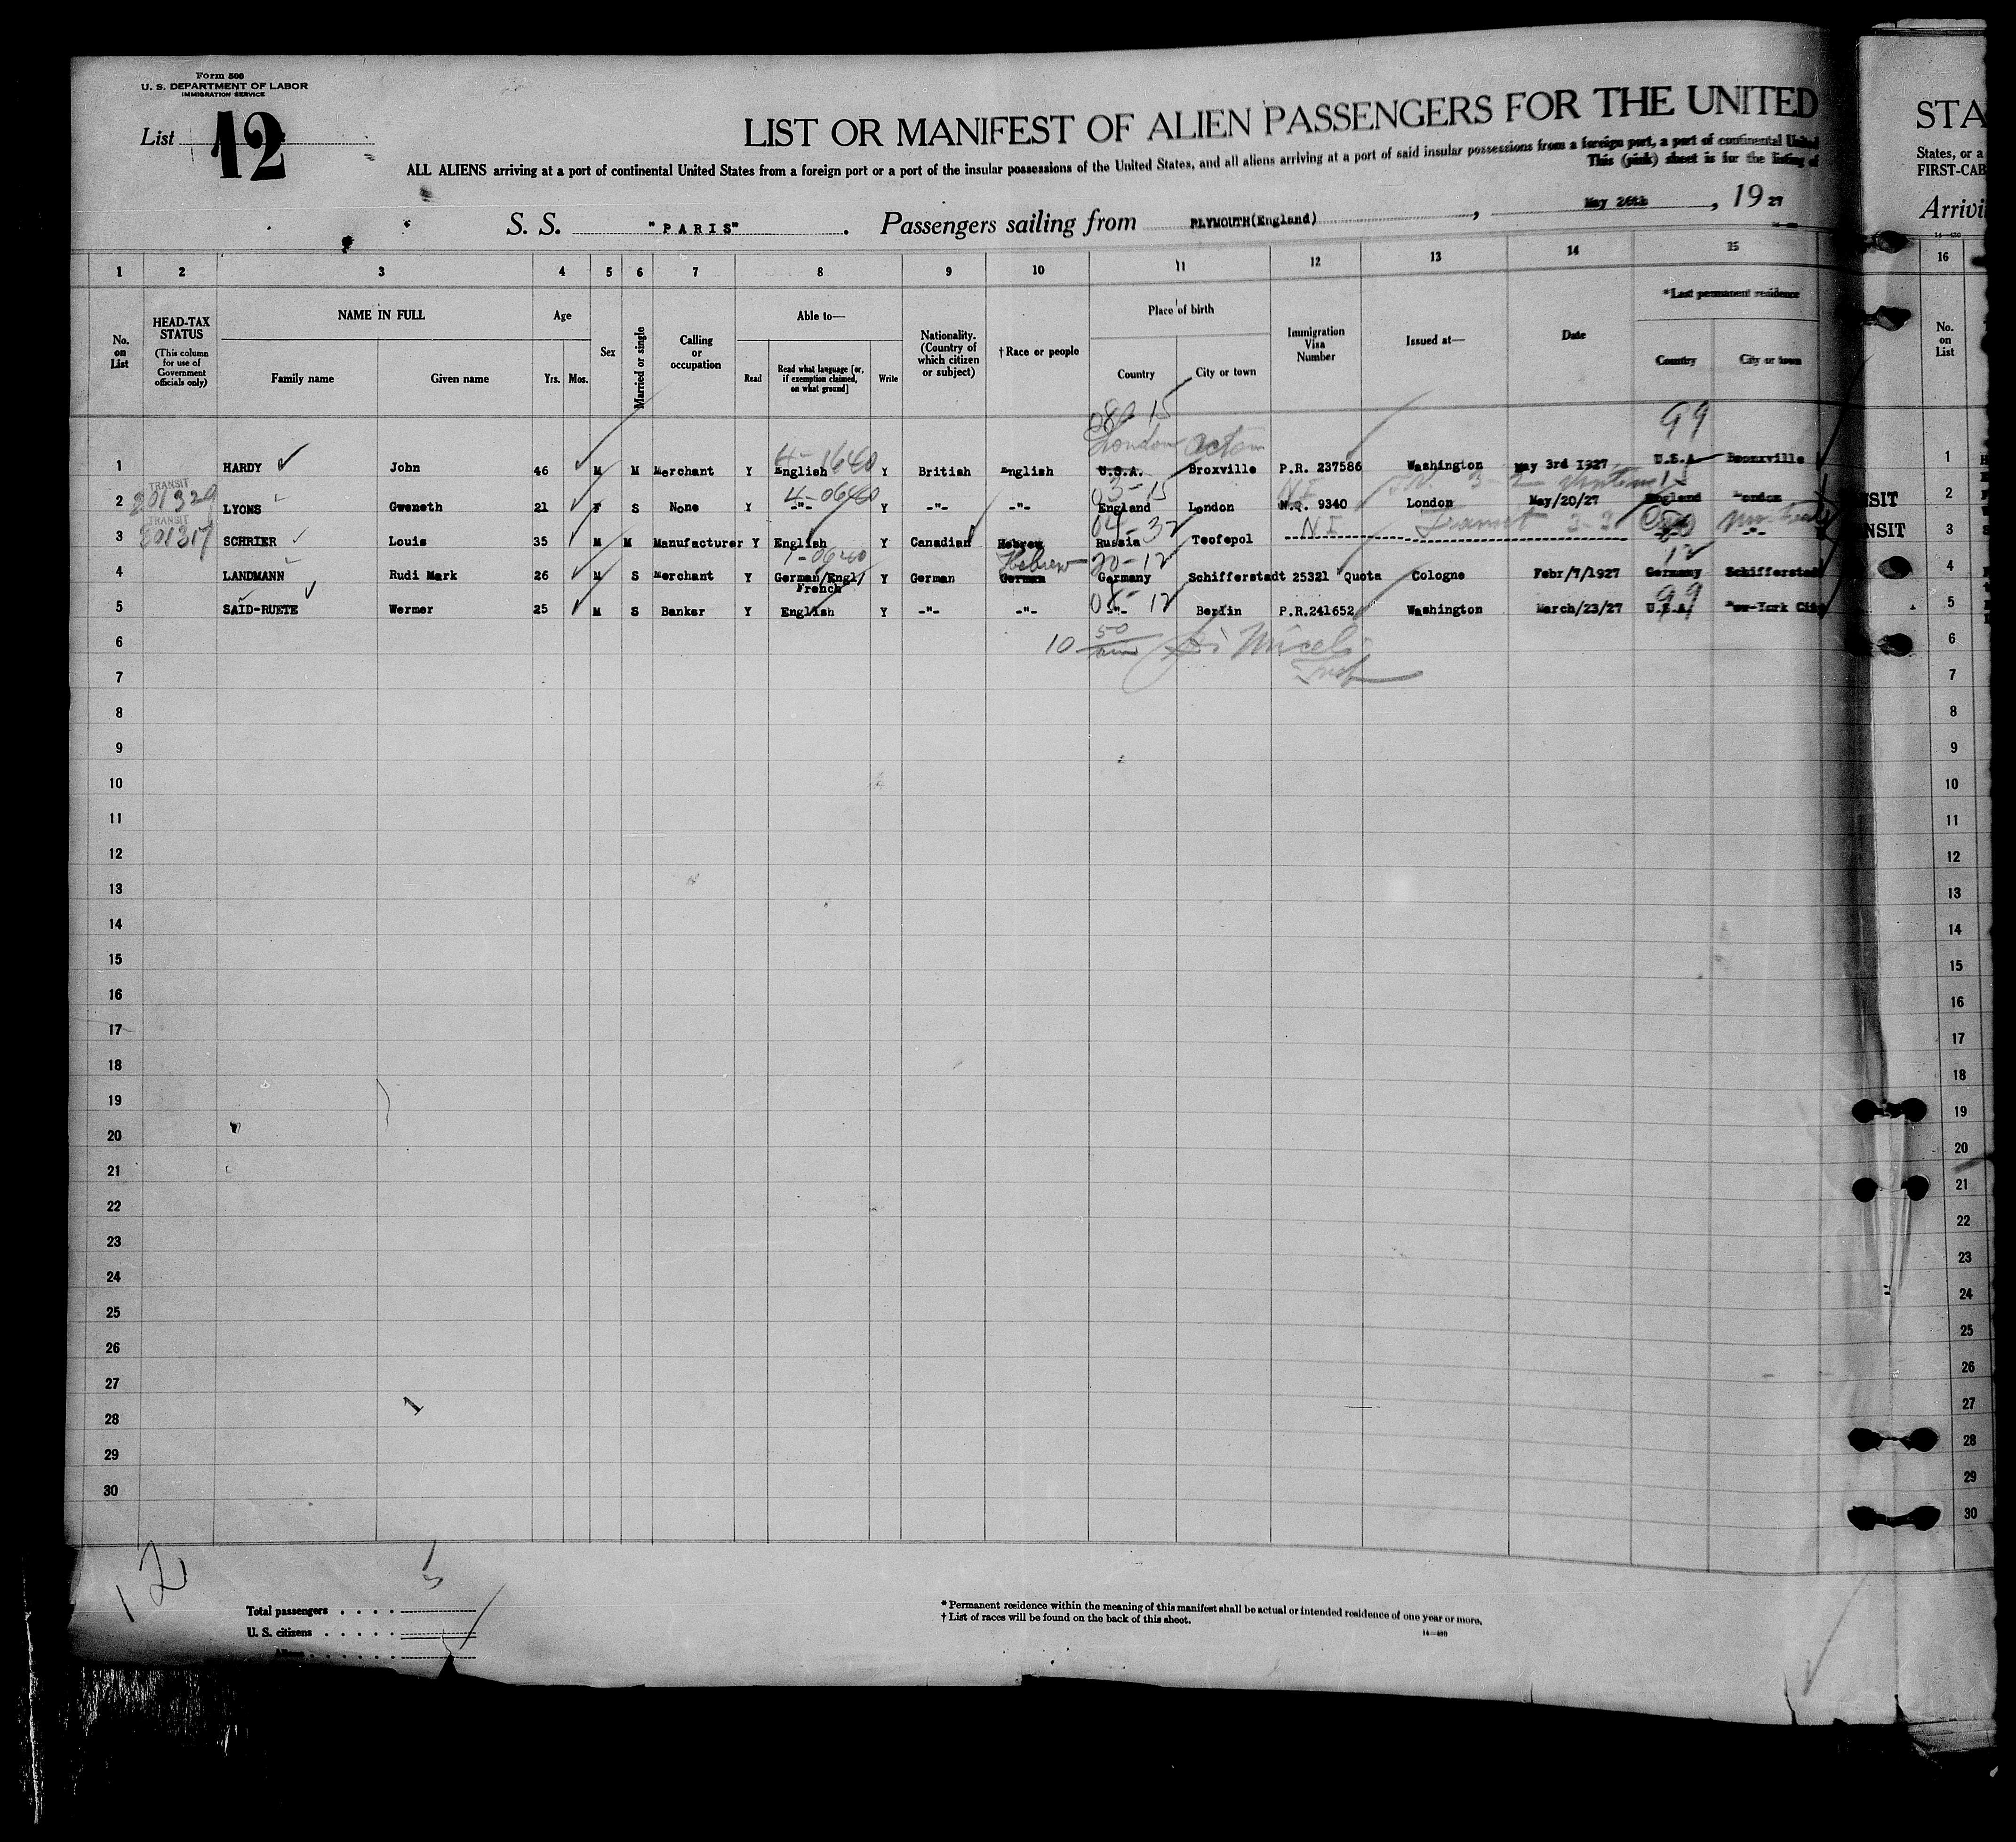 Form 500
U. S. DEPARTMENT OF LABOR
IMMIGRATION SERVICE
List 12
LIST OR MANIFEST OF ALIEN PASSENGERS FOR THE UNITED
STA
ALL ALIENS arriving at a port of continental United States from a foreign port or a port of the insular possessions of the United States, and all aliens arriving at a port of said insular possessions from a foreign port, a part of continental United
States, or a
This (pink) sheet is for the listing of
FIRST-CAB
S. S. "PARIS". Passengers sailing from PLYMOUTH(England), May 26th, 1927
Arrivi
1 2 3 4 5 6 7 8 9 10 11 12 13 14 15 16
No. on List
HEAD-TAX STATUS
(This column for use of Government officials only)
NAME IN FULL
Family name
Given name
Age
Yrs. Mos.
Sex
Married or single
Calling or occupation
Able to—
Read
Read what language [or, if exemption claimed, on what ground]
Write
Nationality. (Country of which citizen or subject)
†Race or people
Place of birth
Country
City or town
Immigration Visa Number
Issued at—
Date
*Last permanent residence
Country
City or town
No. on List
London Acton 99
4-1640
1 HARDY John 46 M M Merchant Y English Y British English U.S.A. Broxville P.R. 237586 Washington May 3rd 1927 U.S.A Bronxville 1
TRANSIT
201329
4-0640 03-15 NI
2 LYONS Gweneth 21 F S None Y -"- Y -"- -"- England London N.Q. 9340 London May/20/27 England London SIT 2
TRANSIT
201317
04-32 NI Transit 3-2
3 SCHRIER Louis 35 M M Manufacturer Y English Y Canadian Hebrew Russia Teofepol -"- -"- NSIT 3
Hebrew 20-12 12
4 LANDMANN Rudi Mark 26 M S Merchant Y German/Engl/ French Y German German Germany Schifferstadt 25321 Quota Cologne Febr/7/1927 Germany Schifferstadt 4
08-12 99
5 SAID-RUETE Werner 25 M S Banker Y English Y -"- -"- -"- Berlin P.R.241652 Washington March/23/27 U.S.A New-York City 5
6 10 50 6
7 7
8 8
9 9
10 10
11 11
12 12
13 13
14 14
15 15
16 16
17 17
18 18
19 19
20 20
21 21
22 22
23 23
24 24
25 25
26 26
27 27
28 28
29 29
30 30
12
Total passengers 5
U. S. citizens
Aliens
* Permanent residence within the meaning of this manifest shall be actual or intended residence of one year or more.
† List of races will be found on the back of this sheet.
14—430